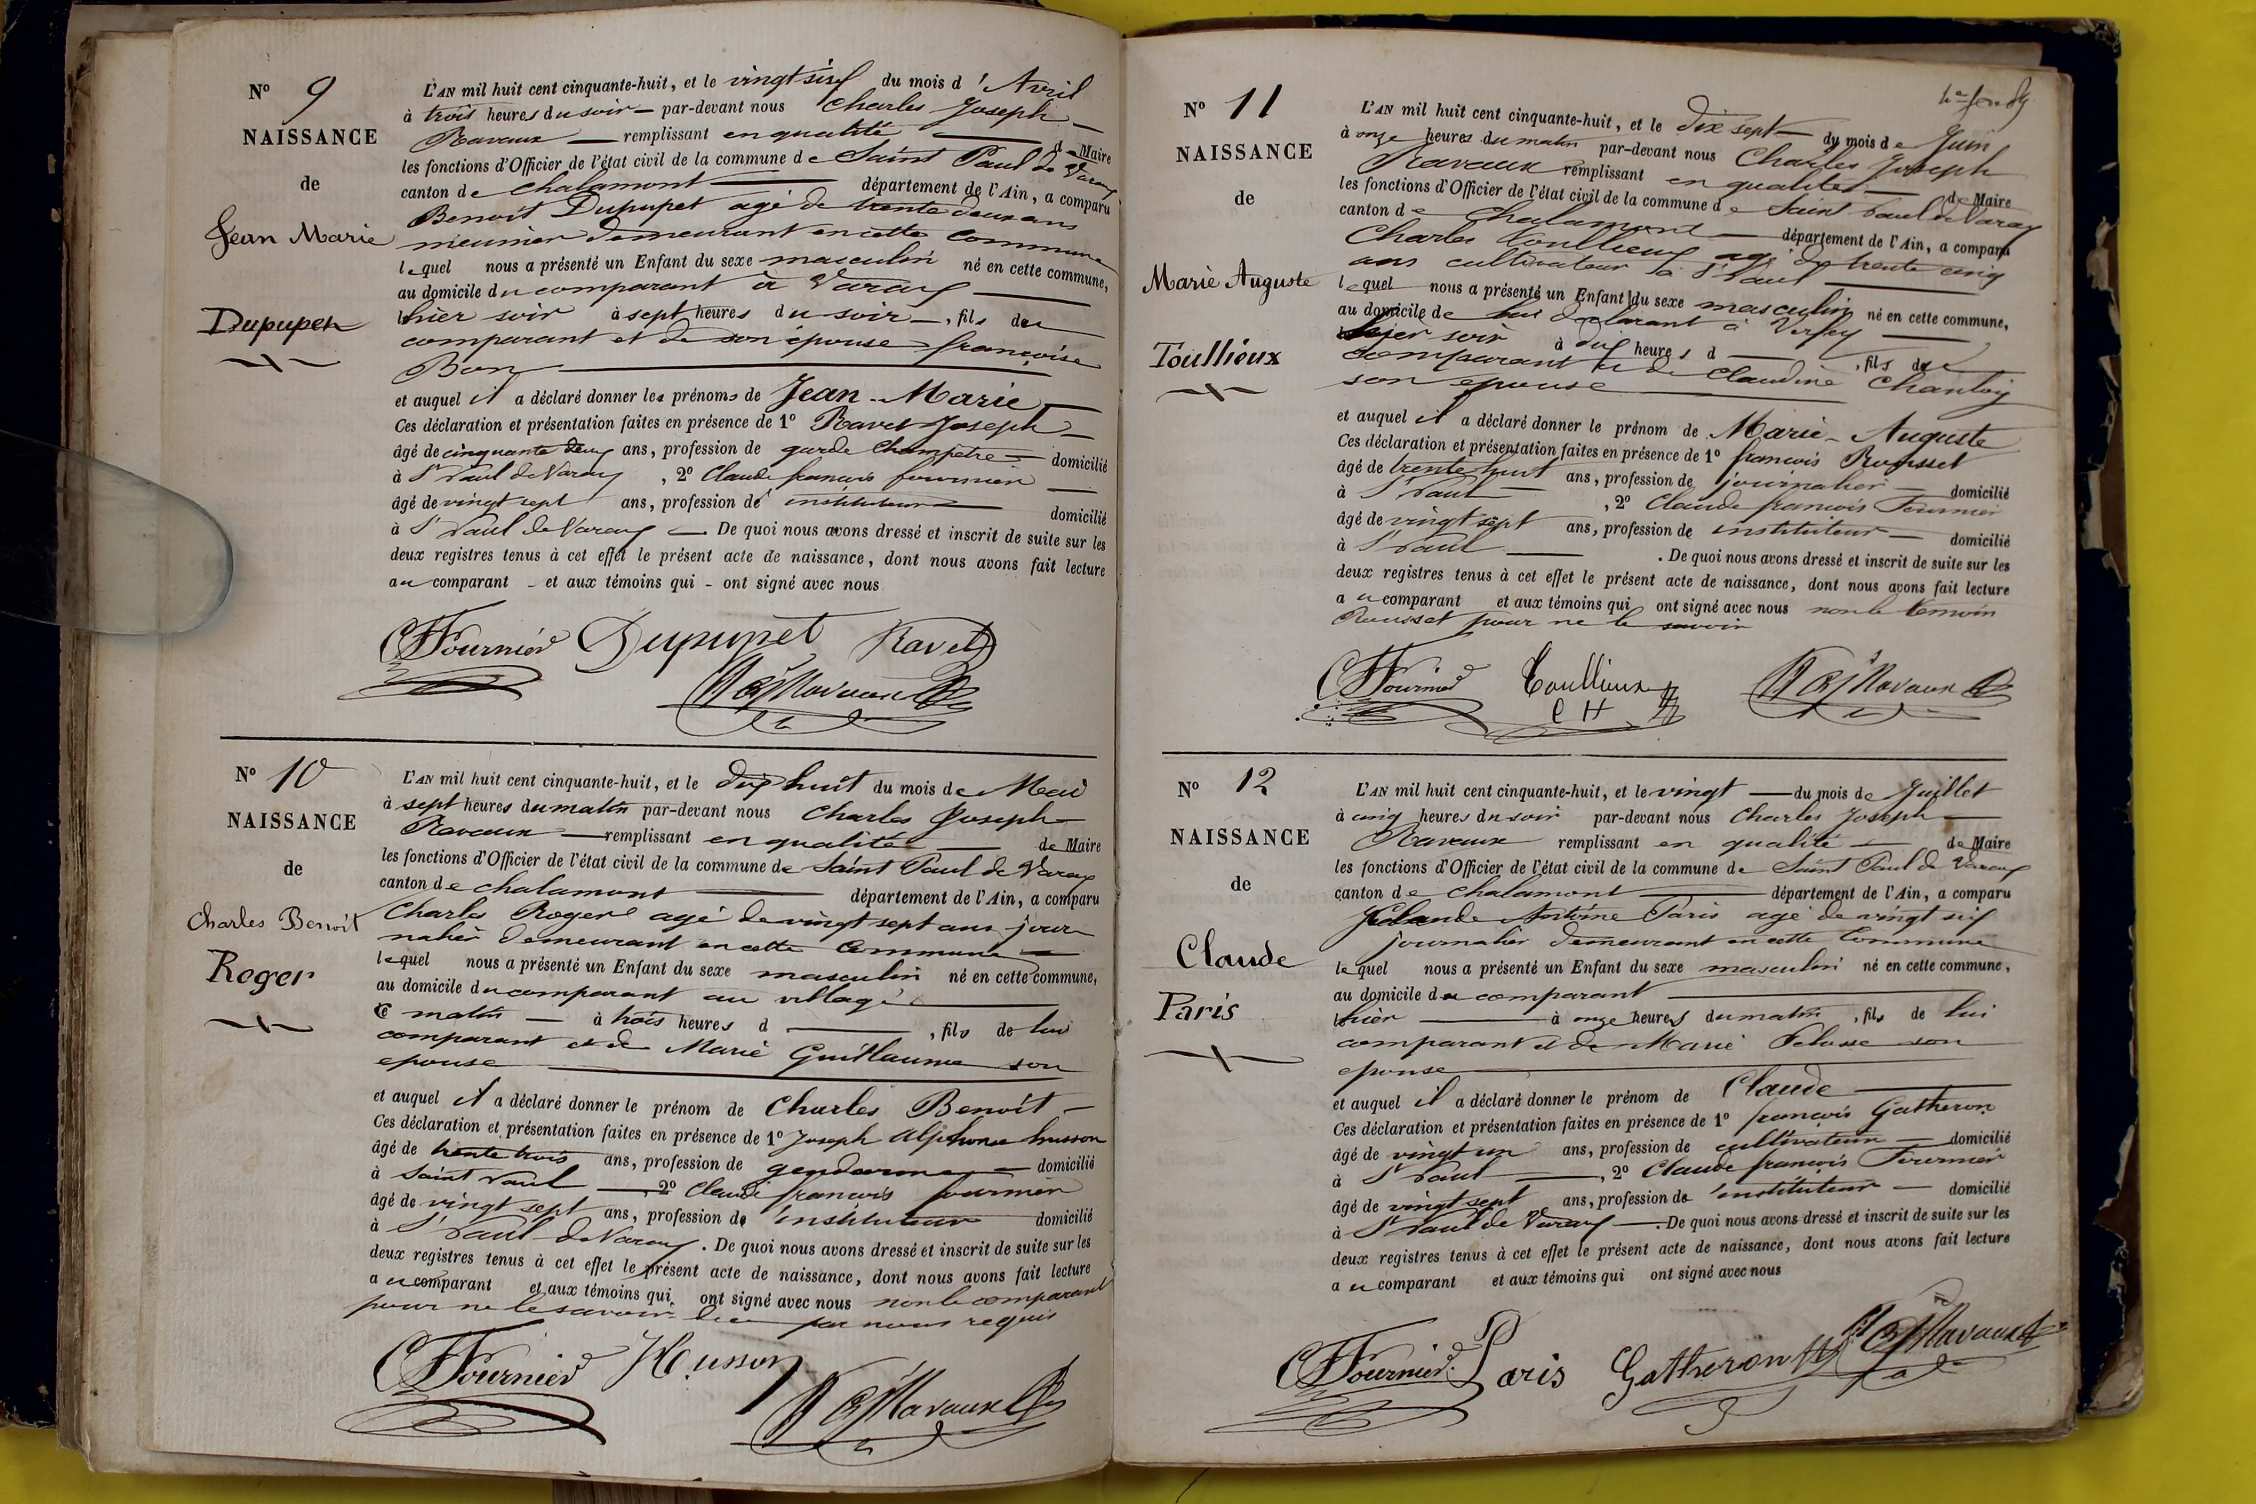 N° 9
NAISSANCE
de
Jean Marie
Dupupet
L'AN mil huit cent cinquante-huit, et le vingt six du mois d'Avril
à trois heures du soir — par-devant nous Charles Joseph —
Ravaux — remplissant en qualité — de Maire
les fonctions d'Officier de l'état civil de la commune de Saint Paul de Varax
canton de Chalamont — département de l'Ain, a comparu
Benoit Dupupet agé de trente deux ans
meunier demeurant en cette commune
lequel nous a présenté un Enfant du sexe masculin né en cette commune,
au domicile du comparant à Varax —
hier soir à sept heures du soir —, fils du
comparant et de son épouse françoise
Bon —
et auquel il a déclaré donner les prénoms de Jean-Marie —
Ces déclaration et présentation faites en présence de 1° Ravet Joseph —
âgé de cinquante deux ans, profession de garde champêtre — domicilié
à St Paul de Varax, 2° Claude françois fournier —
âgé de vingt sept ans, profession de instituteur — domicilié
à St Paul de Varax — De quoi nous avons dressé et inscrit de suite sur les
deux registres tenus à cet effet le présent acte de naissance, dont nous avons fait lecture
au comparant - et aux témoins qui - ont signé avec nous
CF Fournier Dupupet Ravet
Ravaux
N° 10
NAISSANCE
de
Charles Benoît
Roger
L'AN mil huit cent cinquante-huit, et le dix huit du mois de Mai
à sept heures du matin par-devant nous Charles Joseph
Ravaux — remplissant en qualité — de Maire
les fonctions d'Officier de l'état civil de la commune de Saint Paul de Varax
canton de Chalamont — département de l'Ain, a comparu
Charles Roger agé de vingt sept ans jour
nalier demeurant en cette Commune —
lequel nous a présenté un Enfant du sexe masculin né en cette commune,
au domicile du comparant au village —
Ce matin — à trois heures d —, fils de lui
comparant et de Marie Guillaume son
epouse —
et auquel il a déclaré donner le prénom de Charles Benoît —
Ces déclaration et présentation faites en présence de 1° Joseph Alphonse husson
âgé de trente trois ans, profession de gendarme — domicilié
à Saint Paul —, 2° Claude françois fournier
âgé de vingt sept ans, profession de instituteur domicilié
à St Paul de Varax. De quoi nous avons dressé et inscrit de suite sur les
deux registres tenus à cet effet le présent acte de naissance, dont nous avons fait lecture
au comparant et aux témoins qui ont signé avec nous non le comparant
pour ne le savoir de ce par nous requis
CF Fournier Husson
Ravaux
N° 11
NAISSANCE
de
Marie Auguste
Toullieux
L'AN mil huit cent cinquante-huit, et le dix sept — du mois de Juin
à onze heures du matin par-devant nous Charles Joseph
Ravaux remplissant en qualité — de Maire
les fonctions d'Officier de l'état civil de la commune de Saint Paul de Varax
canton de Chalamont — département de l'Ain, a comparu
Charles Toullieux agé de trente cinq
ans cultivateur à St Paul —
lequel nous a présenté un Enfant du sexe masculin né en cette commune,
au domicile de lui déclarant à Verfey —
hier soir à dix heures d —, fils du
comparant et de Claudine Chanloy
son epouse —
et auquel il a déclaré donner le prénom de Marie-Auguste
Ces déclaration et présentation faites en présence de 1° françois Rousset
âgé de trente huit ans, profession de journalier — domicilié
à St Paul —, 2° Claude françois Fournier
âgé de vingt sept ans, profession de instituteur — domicilié
à St Paul —. De quoi nous avons dressé et inscrit de suite sur les
deux registres tenus à cet effet le présent acte de naissance, dont nous avons fait lecture
au comparant et aux témoins qui ont signé avec nous non le temoin
Rousset pour ne le savoir
CF Fournier Toullieux Ravaux
C H
N° 12
NAISSANCE
de
Claude
Paris
L'AN mil huit cent cinquante-huit, et le vingt — du mois de Juillet
à cinq heures du soir par-devant nous Charles Joseph —
Ravaux remplissant en qualité — de Maire
les fonctions d'Officier de l'état civil de la commune de Saint Paul de Varax
canton de Chalamont — département de l'Ain, a comparu
Claude Antoine Paris agé de vingt six
journalier demeurant en cette Commune
lequel nous a présenté un Enfant du sexe masculin né en cette commune,
au domicile du comparant —
hier — à onze heures du matin, fils de lui
comparant et de Marie Pelosse son
epouse —
et auquel il a déclaré donner le prénom de Claude —
Ces déclaration et présentation faites en présence de 1° françois Gatheron
âgé de vingt un ans, profession de cultivateur — domicilié
à St Paul —, 2° Claude françois Fournier
âgé de vingt sept ans, profession de instituteur — domicilié
à St Paul de Varax —. De quoi nous avons dressé et inscrit de suite sur les
deux registres tenus à cet effet le présent acte de naissance, dont nous avons fait lecture
au comparant et aux témoins qui ont signé avec nous
CF Fournier Paris Gatheron Ravaux